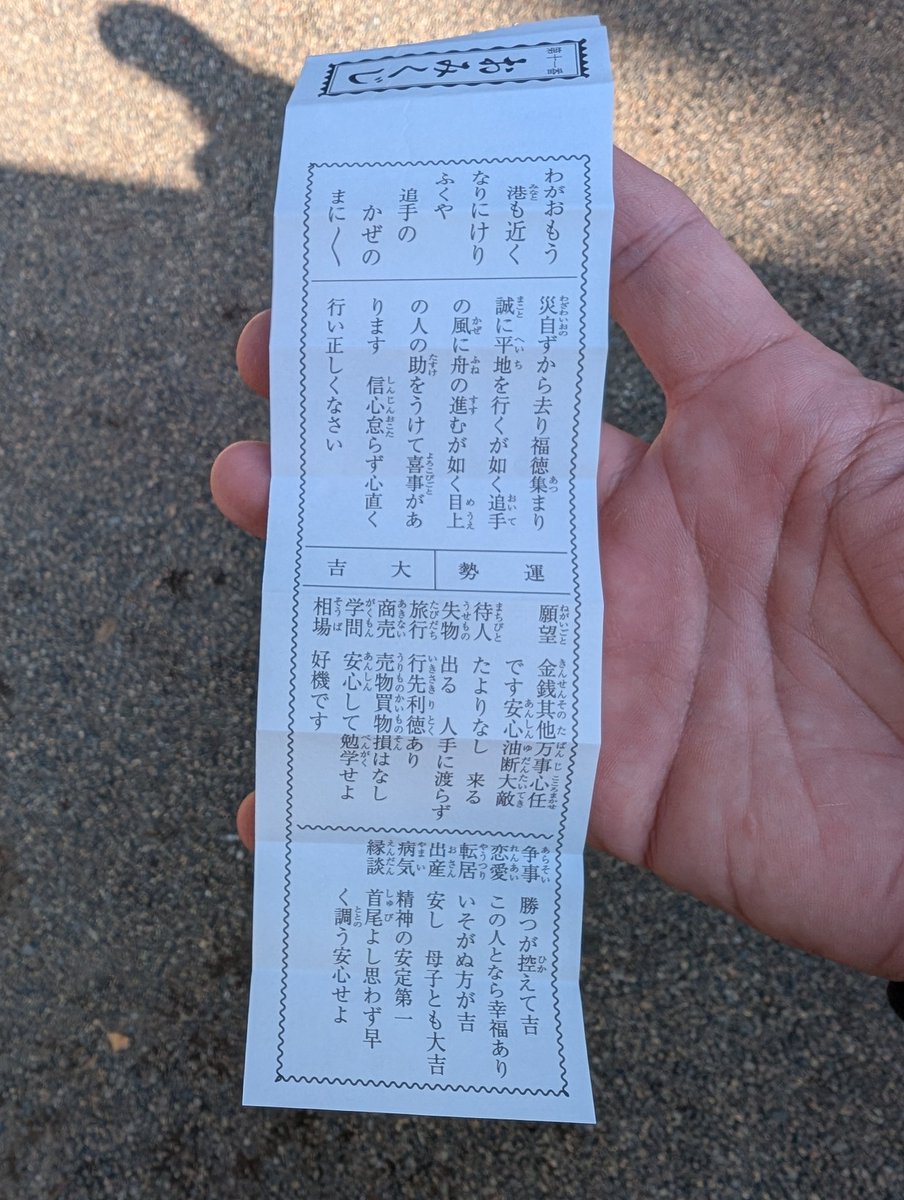 第十一番
おみくじ
わがおもう
港も近く
なりにけり
ふくや
追手の
かぜの
まに〳〵
災自ずから去り福徳集まり
誠に平地を行くが如く追手
の風に舟の進むが如く目上
の人の助をうけて喜事があ
ります　信心怠らず心直く
行い正しくなさい
運勢
大吉
願望　金銭其他万事心任
です安心油断大敵
待人　たよりなし　来る
失物　出る　人手に渡らず
旅行　行先利徳あり
商売　売物買物損はなし
学問　安心して勉学せよ
相場　好機です
争事　勝つが控えて吉
恋愛　この人となら幸福あり
転居　いそがぬ方が吉
出産　安し　母子とも大吉
病気　精神の安定第一
縁談　首尾よし思わず早
く調う安心せよ